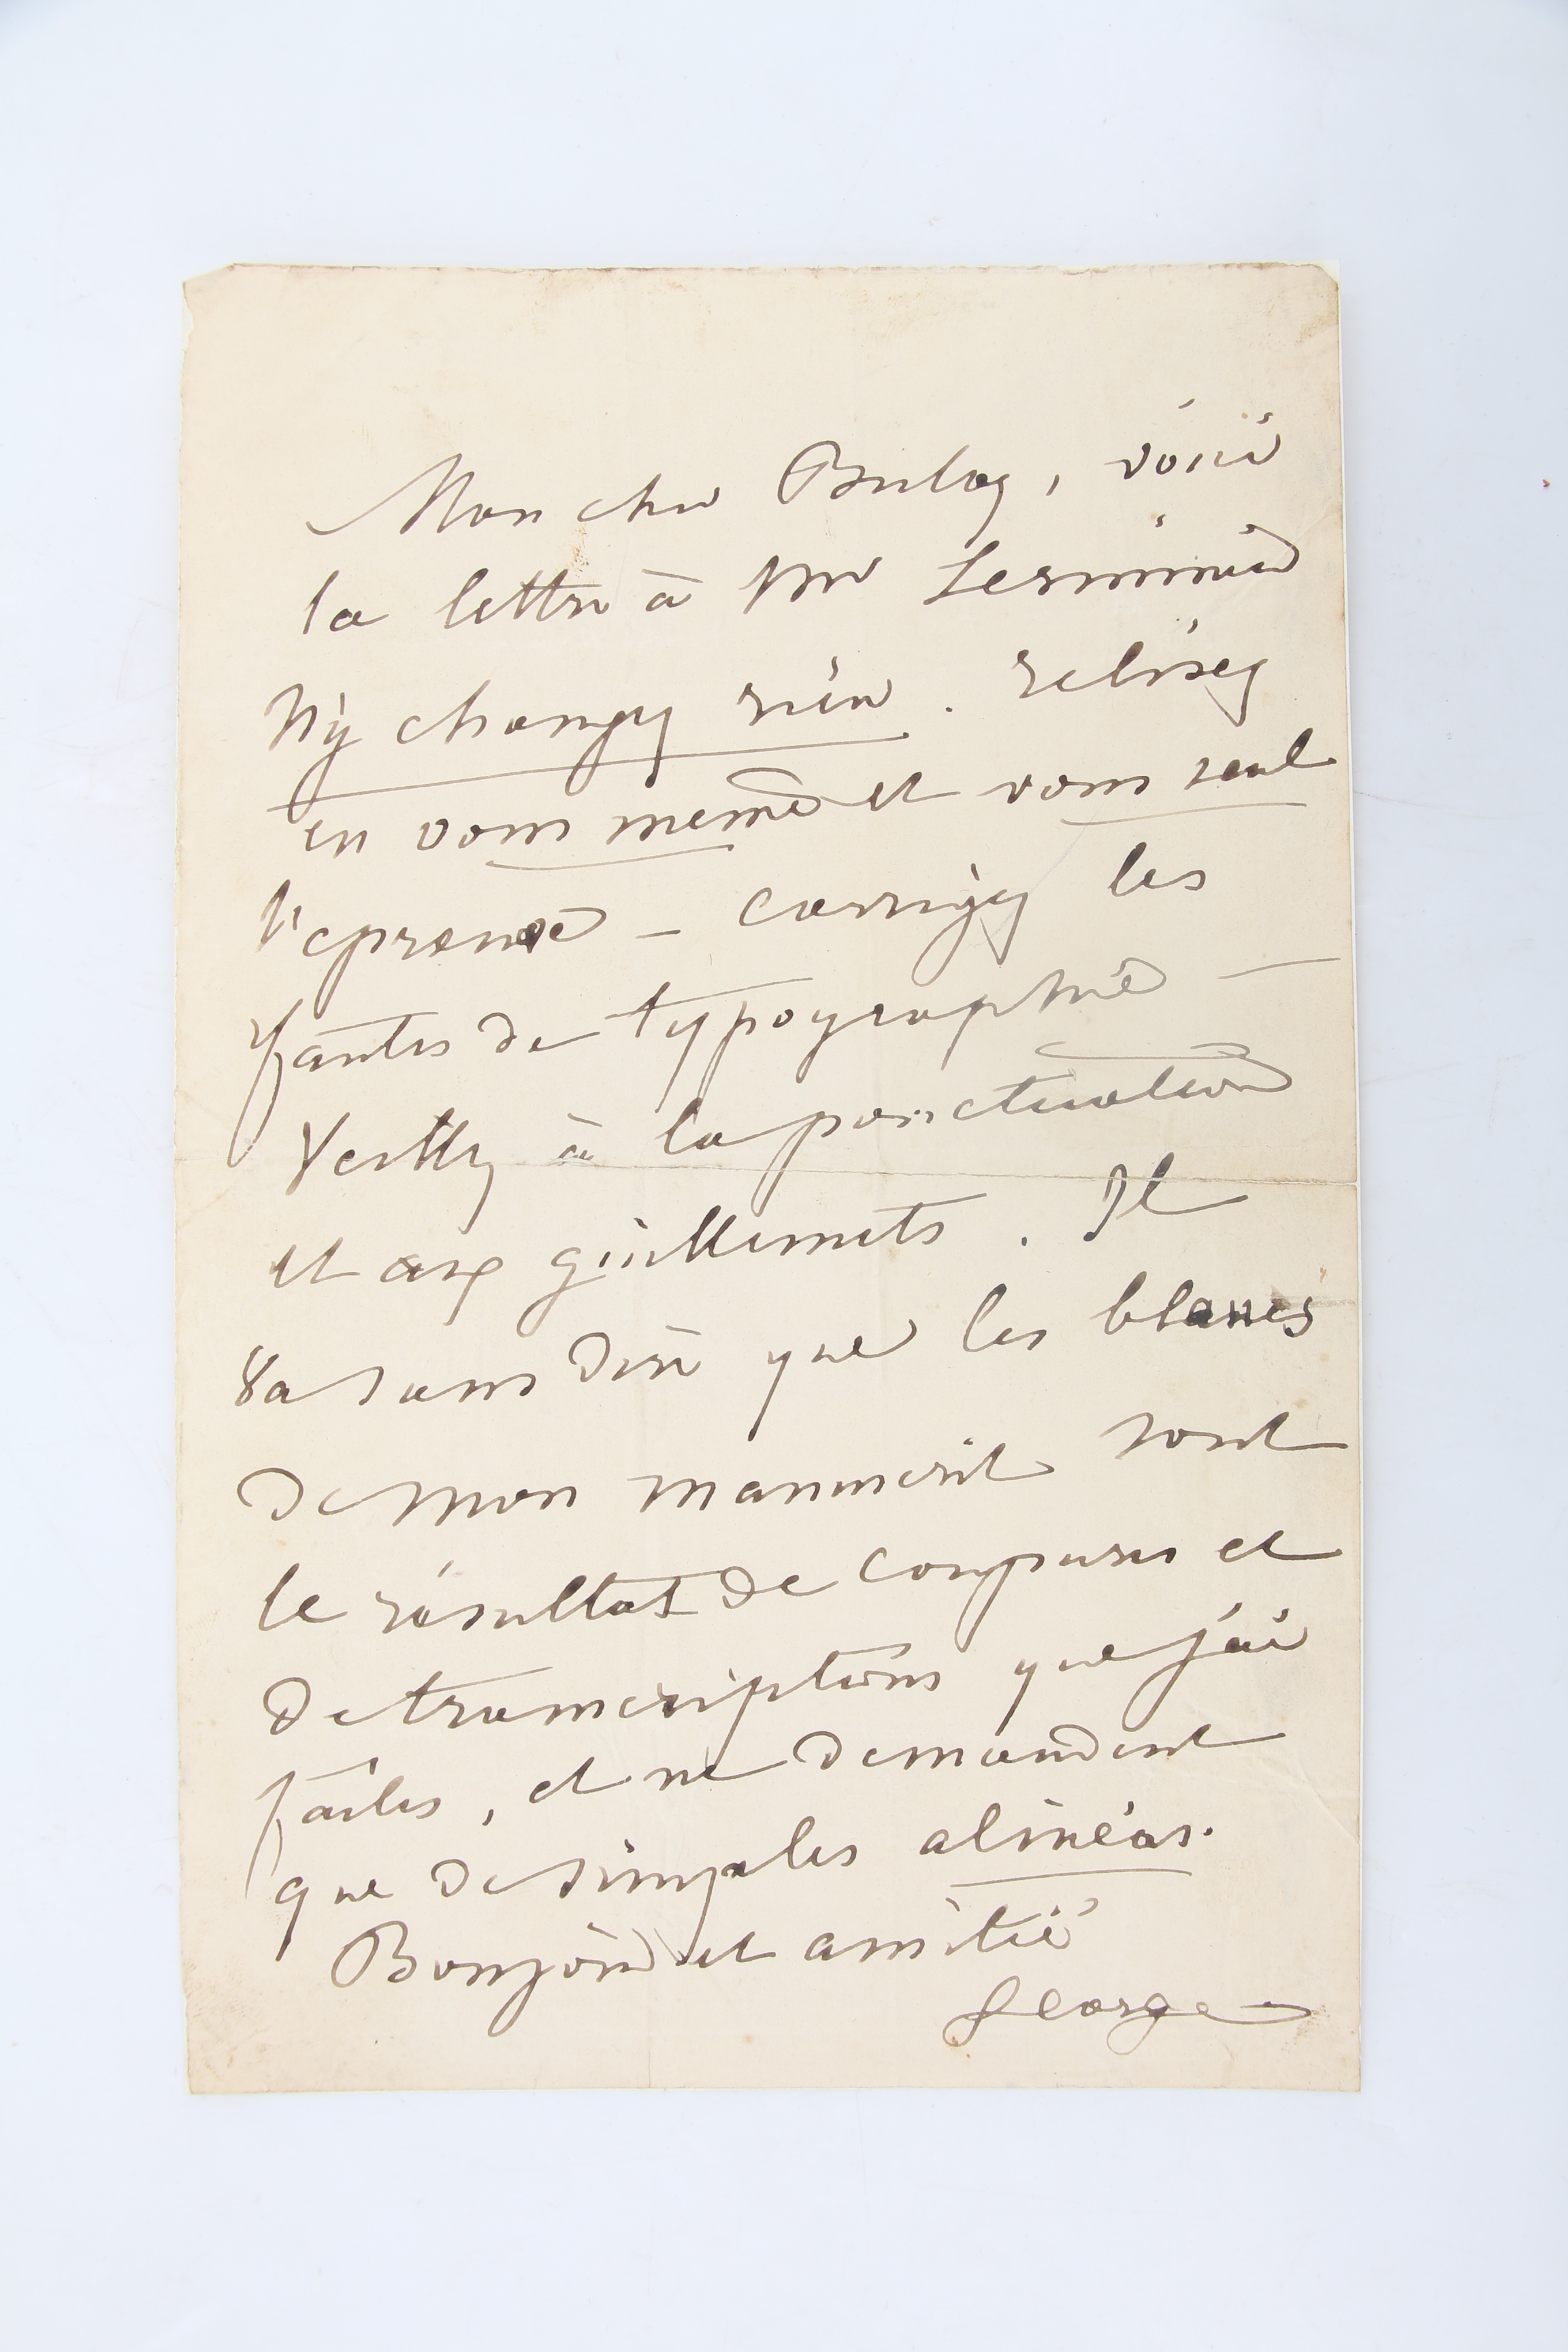 Mon cher Buloz, voici
la lettre à Mr Lerminier
N'y changez rien. relisez
en vous même et vous seul
l'epreuve — corrigez les
fautes de typographie —
Veillez à la ponctuation
et aux guillemets. Il
va sans dire que les blancs
de mon manuscrit sont
le résultat de coupures et
de transcriptions que j'ai
faites, et ne demandent
que de simples alinéas.
Bonjour et amitié
George